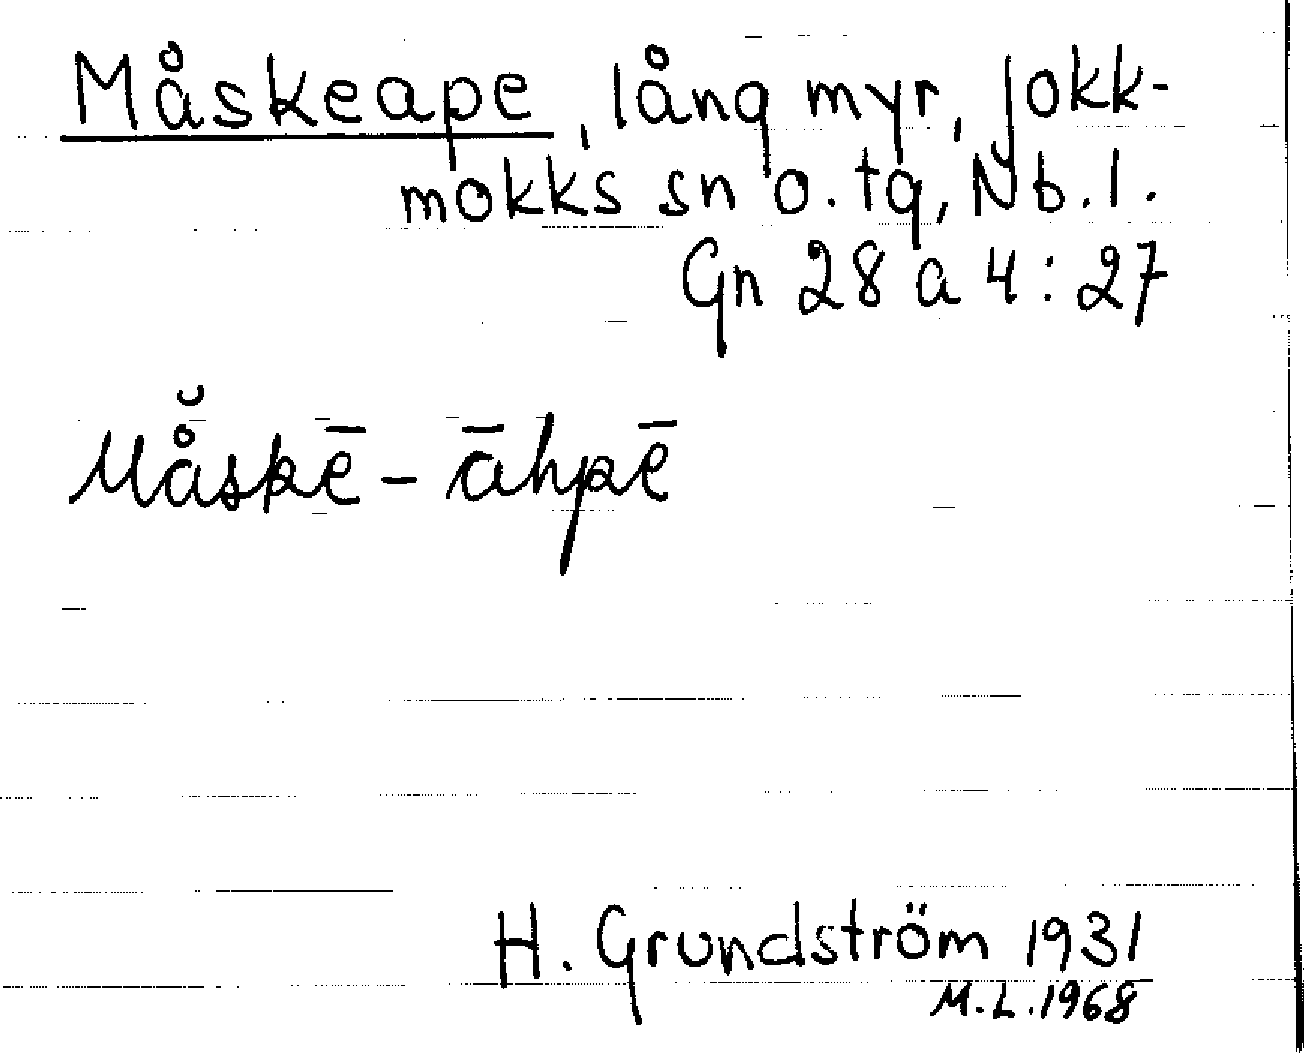 Måskeape, lång myr, Jokk-
mokks sn o. tg, Nb. l.
Gn 28 a 4:27
Må̆skē - āhpē
H. Grundström 1931
M.L. 1968